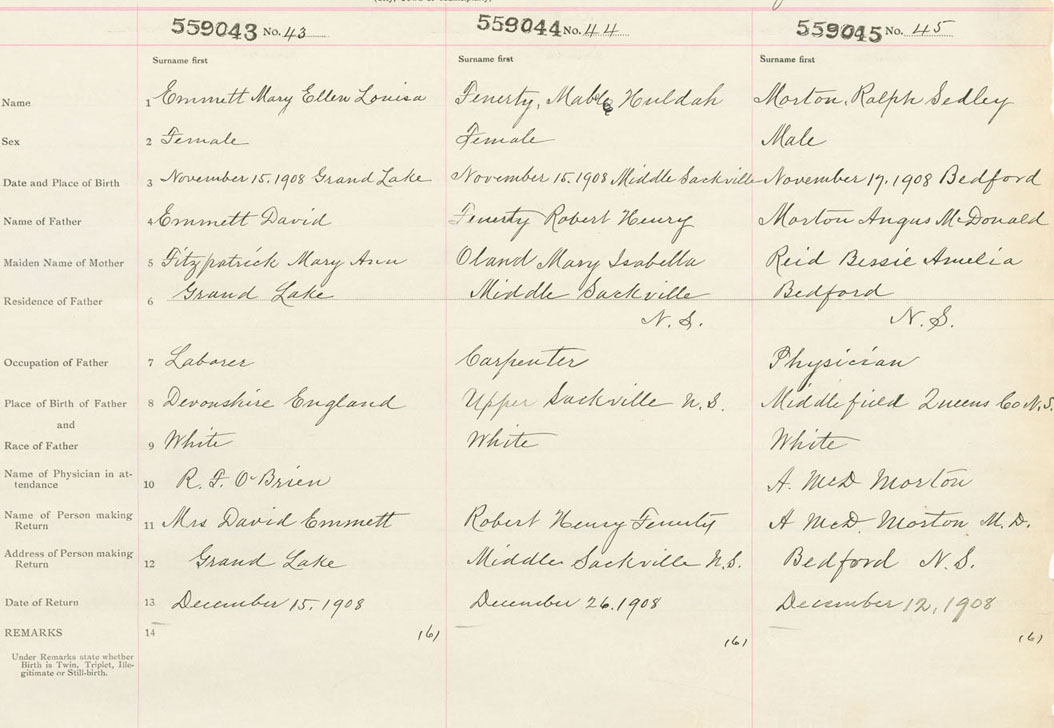 559043 No. 43 559044 No. 44 559045 No. 45
Surname first Surname first Surname first
Name 1 Emmett Mary Ellen Louisa Fenerty, Mable Huldah Morton, Ralph Sedley
Sex 2 Female Female Male
Date and Place of Birth 3 November 15. 1908 Grand Lake November 15. 1908 Middle Sackville November 17. 1908 Bedford
Name of Father 4 Emmett David Fenerty Robert Henry Morton Angus McDonald
Maiden Name of Mother 5 Fitzpatrick Mary Ann Oland Mary Isabella Reid Bessie Amelia
Residence of Father 6 Grand Lake Middle Sackville Bedford
N. S. N. S.
Occupation of Father 7 Laborer Carpenter Physician
Place of Birth of Father 8 Devonshire England Upper Sackville N. S. Middlefield Queens Co N. S.
and
Race of Father 9 White White White
Name of Physician in at-
tendance 10 R. F. O'Brien A. McD Morton
Name of Person making
Return 11 Mrs David Emmett Robert Henry Fenerty A McD. Morton M. D.
Address of Person making
Return 12 Grand Lake Middle Sackville N. S. Bedford N. S.
Date of Return 13 December 15. 1908 December 26. 1908 December 12, 1908
REMARKS 14 (6) (6) (6)
Under Remarks state whether
Birth is Twin, Triplet, Ille-
gitimate or Still-birth.